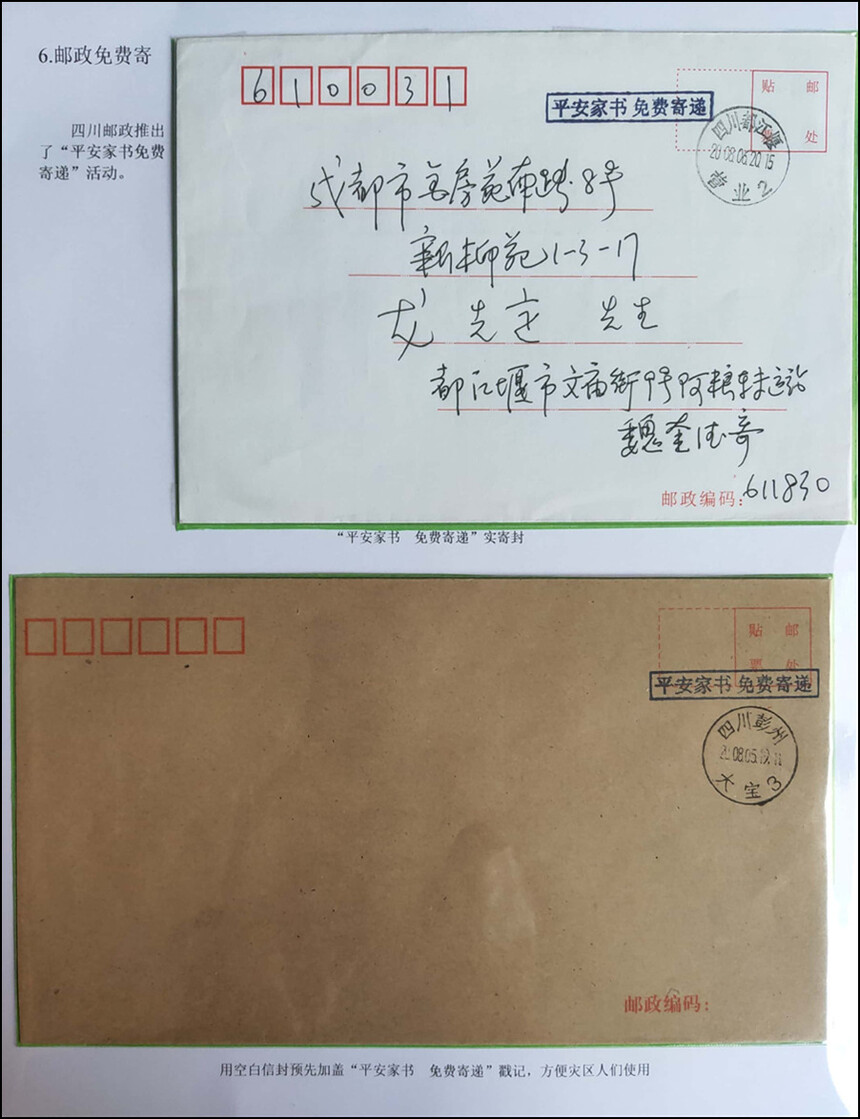 6.邮政免费寄
四川邮政推出
了“平安家书免费
寄递”活动。
610031
平安家书 免费寄递
贴 邮
处
四川都江堰
2008.06.20.15
2
成都市金房苑东路8号
新柳苑1-3-17
先定 先生
都江堰市文庙街9号阿粮转运站
魏奎德寄
邮政编码:611830
“平安家书 免费寄递”实寄封
贴 邮
票 处
平安家书 免费寄递
四川彭州
大宝3
邮政编码:
用空白信封预先加盖“平安家书 免费寄递”戳记，方便灾区人们使用